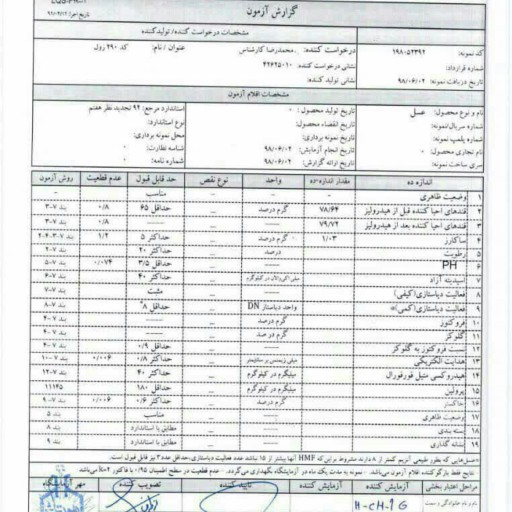 گزارش آزمون
تاریخ اجرا: ۹۶/۰۲/۱۲
مشخصات درخواست کننده/ تولیدکننده
کد نمونه: ۱۹۸۰۵۲۳۹۲ درخواست کننده: محمدرضا کارشناس عنوان / نام: کد ۲۹۰ رول
شماره قرارداد: نشانی درخواست کننده: ۴۲۶۲۵۰۱۰
تاریخ دریافت نمونه: ۹۸/۰۶/۰۲ نشانی تولید کننده:
مشخصات اقلام آزمون
نام و نوع محصول: عسل تاریخ تولید محصول: ۰ استاندارد مرجع: ۹۲ تجدید نظر هفتم
شماره سریال/نمونه: تاریخ انقضاء محصول: نوع استاندارد:
شماره پلمپ نمونه: تاریخ نمونه برداری: محل نمونه برداری:
نام تجاری محصول: ۰ تاریخ انجام آزمایش: ۹۸/۰۶/۰۲ شناسه نظارت: ۰
سری ساخت نمونه: تاریخ ارائه گزارش: ۹۸/۰۶/۰۲ شماره نامه: ۰
اندازه ده مقدار اندازه ده واحد نوع نقص حد قابل قبول عدم قطعیت روش آزمون
۱ وضعیت ظاهری --- مناسب
۲ قندهای احیا کننده قبل از هیدرولیز ۷۸/۶۴ گرم درصد حداقل ۶۵ ۰/۸ بند ۷-۳
۳ قندهای احیا کننده بعد از هیدرولیز ۷۹/۷۲ ------ ۰/۸ بند ۷-۳
۴ ساکارز ۱/۰۳ گرم درصد حداکثر ۵ ۱/۲ بند ۷-۳،۲-۴
۵ رطوبت درصد حداکثر ۲۰ بند ۷-۲
۶ PH ------ حداقل ۳/۵ ۰/۰۷۴ بند ۷-۵
۷ اسیدیته آزاد میلی اکی والان در کیلوگرم حداکثر ۴۰ بند ۷-۶
۸ فعالیت دیاستازی(کیفی) ------ مثبت بند ۷-۷
۹ فعالیت دیاستازی (کمی)* واحد دیاستاز DN حداقل ۸* بند ۷-۸
۱۰ فروکتوز گرم درصد ------ بند ۷-۴
۱۱ گلوکز گرم درصد ------ بند ۷-۴
۱۲ نسبت فروکتوز به گلوکز ------ حداقل ۰/۹ بند ۷-۴
۱۳ هدایت الکتریکی میلی زیمنس بر سانتیمتر حداکثر ۰/۸ ۰/۰۰۶ بند ۷-۱۰
۱۴ هیدروکسی متیل فورفورال میلیگرم در کیلوگرم حداکثر ۴۰ بند ۷-۱۲
۱۵ پرولین میلیگرم در کیلوگرم حداقل ۱۸۰ ۱۱۱۴۵
۱۶ خاکستر گرم درصد حداکثر ۰/۶ ۰/۰۰۶ بند ۷-۹
۱۷ وضعیت ظاهری ------ مناسب بند ۵
۱۸ بسته بندی ------ مطابق با استاندارد بند ۸
۱۹ نشانه گذاری ------ مطابق با استاندارد بند ۹
*عسل هایی که بطور طبیعی آنزیم کمتر از ۸ دارند مشروط بر این که HMF آنها بیشتر از ۱۵ نباشد عدد فعالیت دیاستازی، حداقل عدد ۳ نیز قابل قبول است.
نتایج فقط بازگو کننده اقلام آزمون می‌باشد. - نمونه به مدت یک ماه در آزمایشگاه نگهداری می‌گردد. - عدم قطعیت در سطح اطمینان ۰/۹۵ با فاکتور k=۲ می‌باشد
مراحل اعتبار بخشی آزمایش کننده آزمایش کننده تایید کننده تصویب کننده مهر آزمایشگاه
نام و نام خانوادگی و سمت